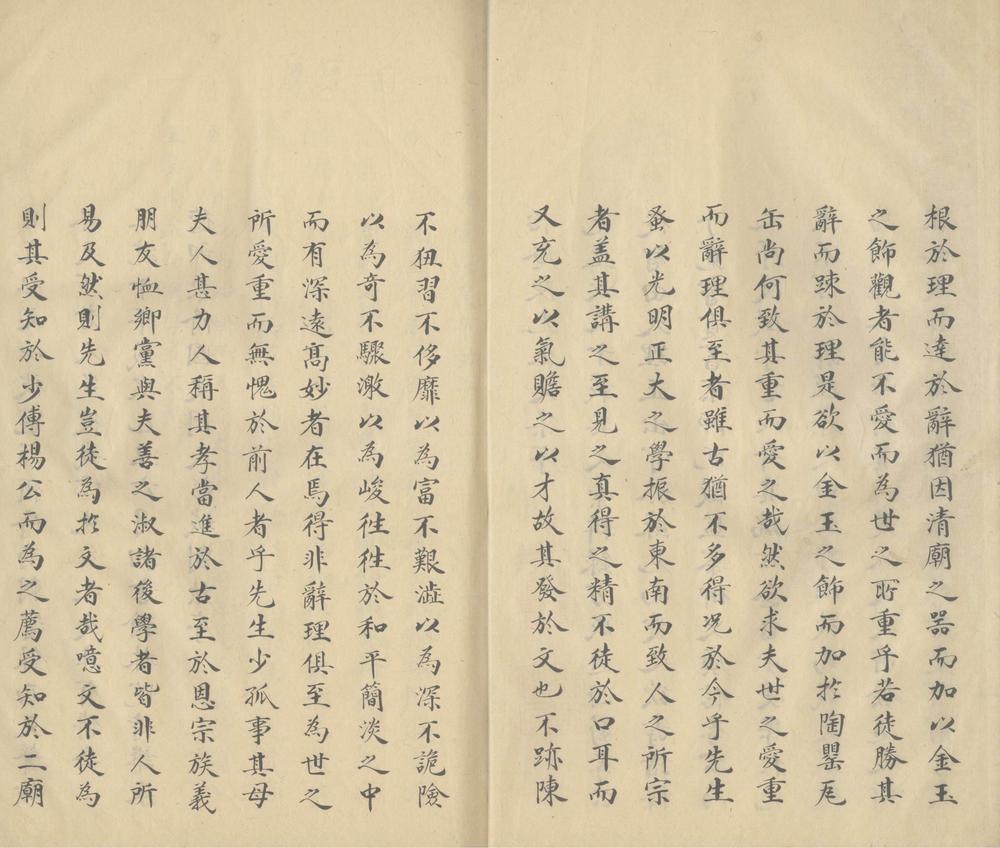 根於理而達於辭猶因清廟之器而加以金玉
之飾觀者能不愛而為世之所重乎若徒勝其
辭而踈於理是欲以金玉之飾而加於陶罌瓦
缶尚何致其重而愛之哉然欲求夫世之愛重
而辭理俱至者雖古猶不多得况於今乎先生
蚤以光明正大之學振於東南而致人之所宗
者盖其講之至見之真得之精不徒於口耳而
又充之以氣贍之以才故其發於文也不跡陳
不狃習不侈靡以為富不艱澁以為深不詭險
以為奇不驟激以為峻徃徃於和平簡淡之中
而有深遠髙妙者在焉得非辭理俱至為世之
所愛重而無愧於前人者乎先生少孤事其母
夫人甚力人稱其孝當進於古至於恩宗族義
朋友恤鄉黨與夫善之淑諸後學者皆非人所
易及然則先生豈徒為扵文者哉噫文不徒為
則其受知於少傅楊公而為之薦受知於二廟